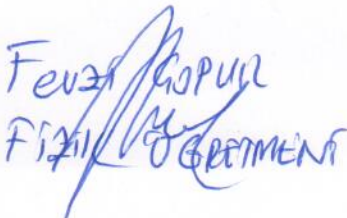 Fevzi GOPUR
FİZİK ÖĞRETMENİ